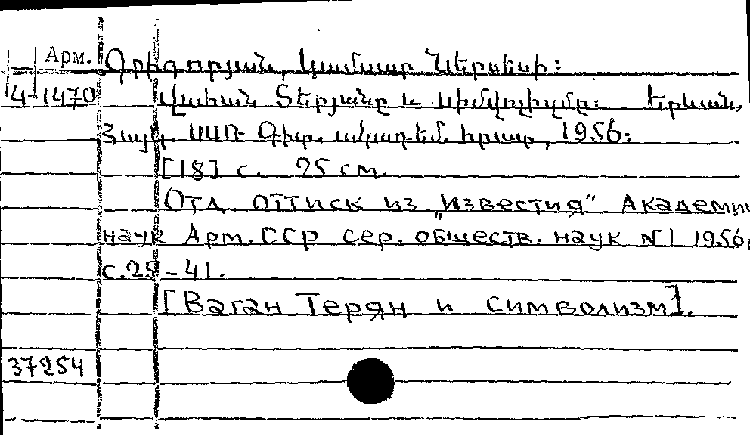 Арм. Գրիգորյան, Կամսար Ներսեսի:
4-1470 Վահան Տերյանը և սիմվոլիզմը: Երևան,
Հայկ. ՍՍՌ Գիտ. ակադեմ. հրատ., 1956:
[18] с. 25 см.
Отд. оттиск из „Известия" Академии
наук Арм. ССР сер. обществ. наук N1 1956,
с. 29-41.
[Ваган Терян и символизм].
37254